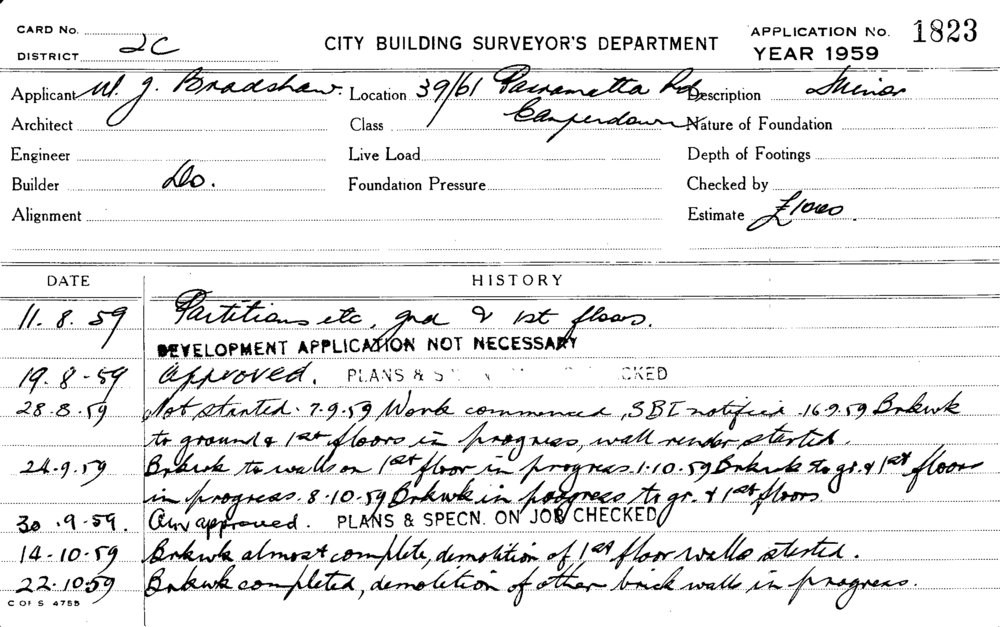 CARD No.
DISTRICT 2C
CITY BUILDING SURVEYOR'S DEPARTMENT
APPLICATION No. 1823
YEAR 1959
Applicant W. J. Bradshaw. Location 39/61 Parramatta Rd, Description Minor
Architect Class Camperdown Nature of Foundation
Engineer Live Load Depth of Footings
Builder Do. Foundation Pressure Checked by
Alignment Estimate £1000.
DATE HISTORY
11. 8. 59 Partitions etc, grd & 1st floors.
DEVELOPMENT APPLICATION NOT NECESSARY
19. 8 - 59 Approved. PLANS & CKED
28.8.59 Not started. 7.9.59 Work commenced, SBI notified. 16.9.59 Brkwk
to ground & 1st floors in progress, wall render started.
24.9.59 Brkwk to walls on 1st floor in progress. 1.10.59 Brkwk to gr. & 1st floors
in progress. 8.10.59 Brkwk in progress to gr. & 1st floors
30.9.59. approved. PLANS & SPECN. ON JOB CHECKED
14-10-59 Brkwk almost complete, demolition of 1st floor walls started.
22.10.59 Brkwk completed, demolition of other brick walls in progress.
C OF S 4755